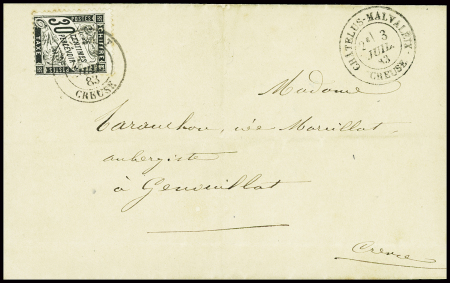 CHIFFRE
TAXE
POSTES
30
CENTIMES
A PERCEVOIR
83
CREUSE
CHATELUS-MALVALEIX
3
JUIL
83
CREUSE
Madame
née
aubergiste
à Genouillat
Creuse